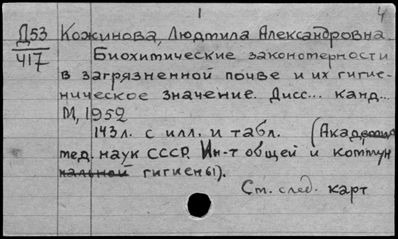 1 4
Д53 Кожинова, Людмила Александровна
417 Биохимические закономерности
в загрязненной почве и их гигие-
ническое значение. Дисс... канд...
М, 1952
143л. с илл. и табл. (Академия
мед. наук СССР. Ин-т общей и коммун
кальной гигиены).
См. след. карт